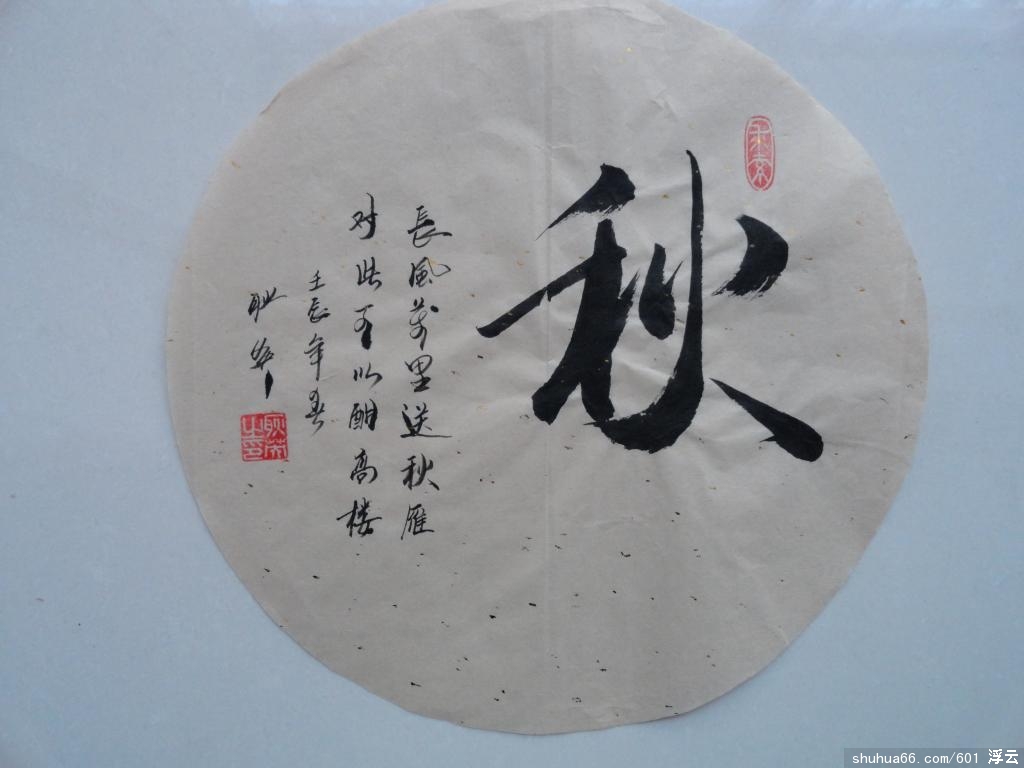 秋
長風萬里送秋雁
对此可以酣高楼
壬辰年春
shuhua66.com/601 浮云